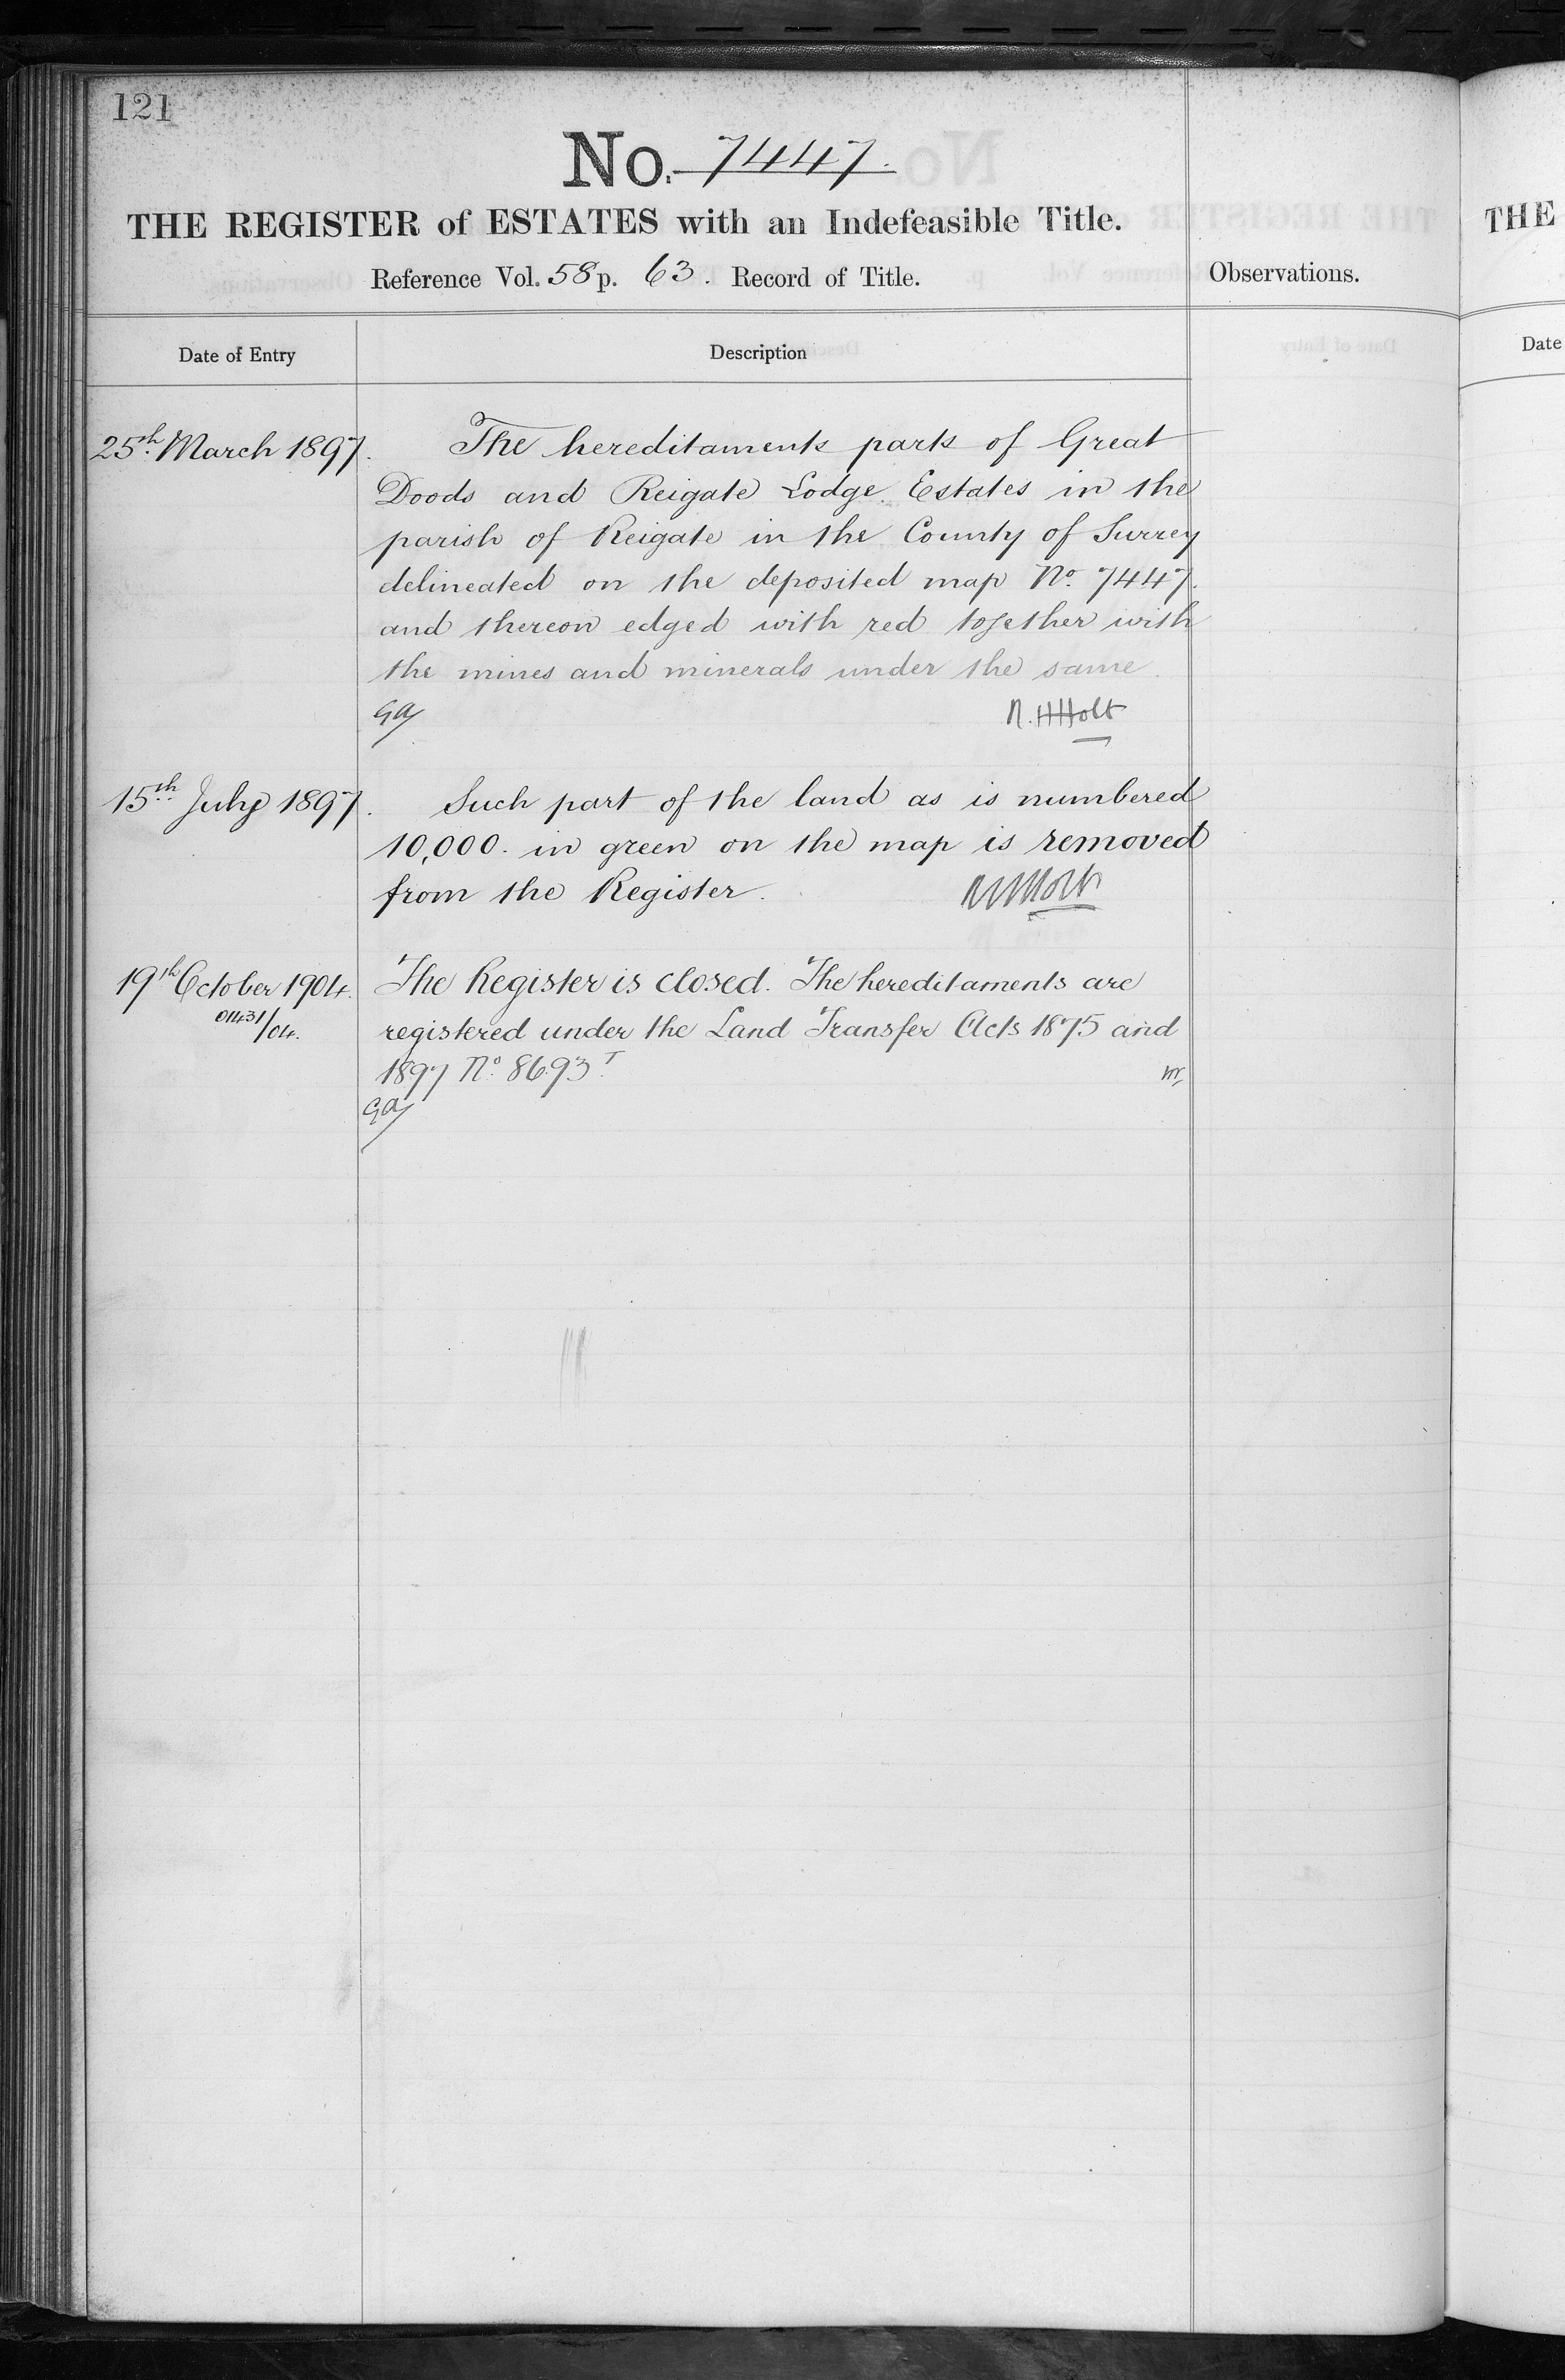 121
No. 7447.
THE REGISTER of ESTATES with an Indefeasible Title.
Reference Vol. 58 p. 63. Record of Title.
Observations.
Date of Entry
Description
25th March 1897.
The hereditaments parts of Great
Doods and Reigate Lodge Estates in the
parish of Reigate in the County of Surrey
delineated on the deposited map No. 7447.
and thereon edged with red together with
the mines and minerals under the same.
GA
R.H Holt
15th July 1897.
Such part of the land as is numbered
10,000. in green on the map is removed
from the Register.
RHHolt
19th October 1904.
01431/04.
The Register is closed. The hereditaments are
registered under the Land Transfer Acts 1875 and
1897 No. 8693T.
GA
THE
Date